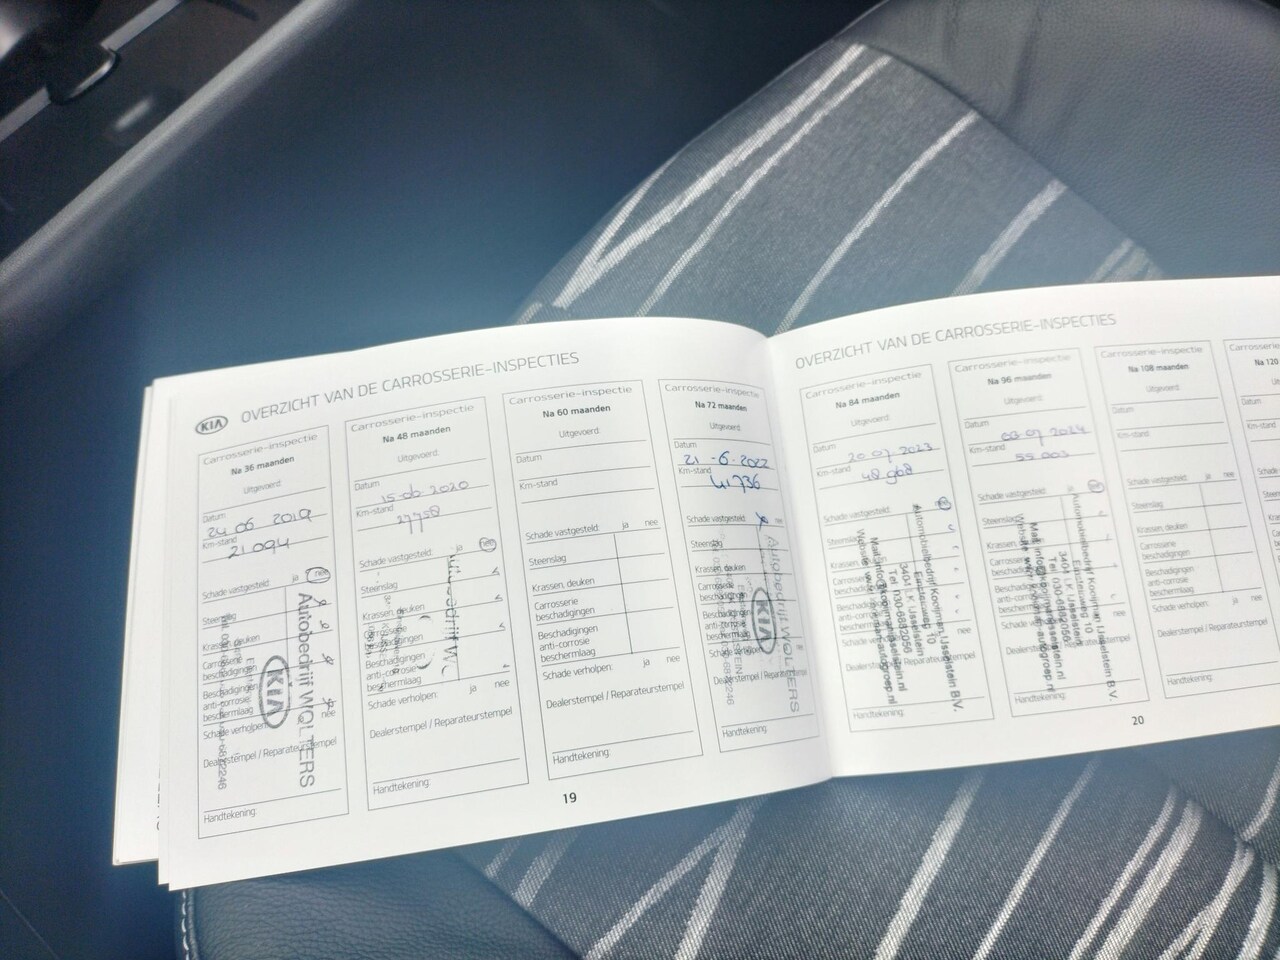 KIA OVERZICHT VAN DE CARROSSERIE-INSPECTIES
Carrosserie-inspectie
Na 36 maanden
Uitgevoerd:
Datum
24 06 2019
Km-stand
21094
Schade vastgesteld: ja nee
Steenslag
Krassen, deuken
Carrosserie
beschadigingen
Beschadigingen
anti-corrosie
beschermlaag
Schade verholpen: nee
Dealerstempel / Reparateurstempel
Handtekening:
Autobedrijf WOLTERS
KIA
Carrosserie-inspectie
Na 48 maanden
Uitgevoerd:
Datum
15-06 2020
Km-stand
27758
Schade vastgesteld: ja nee
Steenslag
Krassen, deuken
Carrosserie
beschadigingen
Beschadigingen
anti-corrosie
beschermlaag
Schade verholpen: ja nee
Dealerstempel / Reparateurstempel
Handtekening:
Carrosserie-inspectie
Na 60 maanden
Uitgevoerd:
Datum
Km-stand
Schade vastgesteld: ja nee
Steenslag
Krassen, deuken
Carrosserie
beschadigingen
Beschadigingen
anti-corrosie
beschermlaag
Schade verholpen: ja nee
Dealerstempel / Reparateurstempel
Handtekening:
Carrosserie-inspectie
Na 72 maanden
Uitgevoerd:
Datum
21-6-2022
Km-stand
41736
Schade vastgesteld: ja nee
Steenslag
Krassen, deuken
Carrosserie
beschadigingen
Beschadigingen
anti-corrosie
beschermlaag
Schade verholpen:
Handtekening:
Autobedrijf WOLTERS
KIA
19
OVERZICHT VAN DE CARROSSERIE-INSPECTIES
Carrosserie-inspectie
Na 84 maanden
Uitgevoerd:
Datum
20 07 2023
Km-stand
48 968
Schade vastgesteld:
Steenslag
Krassen, deuken
Handtekening:
Automobielbedrijf Kooijman IJsselstein B.V.
Eiteren 10
3401 LK IJsselstein
Tel. 030-6882066
Carrosserie-inspectie
Na 96 maanden
Uitgevoerd:
Datum
03 07 2024
Km-stand
55 003
Schade vastgesteld:
Steenslag
Krassen, deuken
Handtekening:
Automobielbedrijf Kooijman IJsselstein B.V.
3401 LK IJsselstein
Tel. 030-6882066
Carrosserie-inspectie
Na 108 maanden
Uitgevoerd:
Datum
Km-stand
Schade vastgesteld: ja nee
Steenslag
Krassen, deuken
Carrosserie
beschadigingen
Beschadigingen
anti-corrosie
beschermlaag
Schade verholpen: ja nee
Dealerstempel / Reparateurstempel
Handtekening:
Na 120
Datum
Km-stand
20